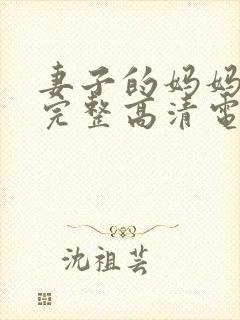 妻子的妈妈
完整高清电
沈祖芸